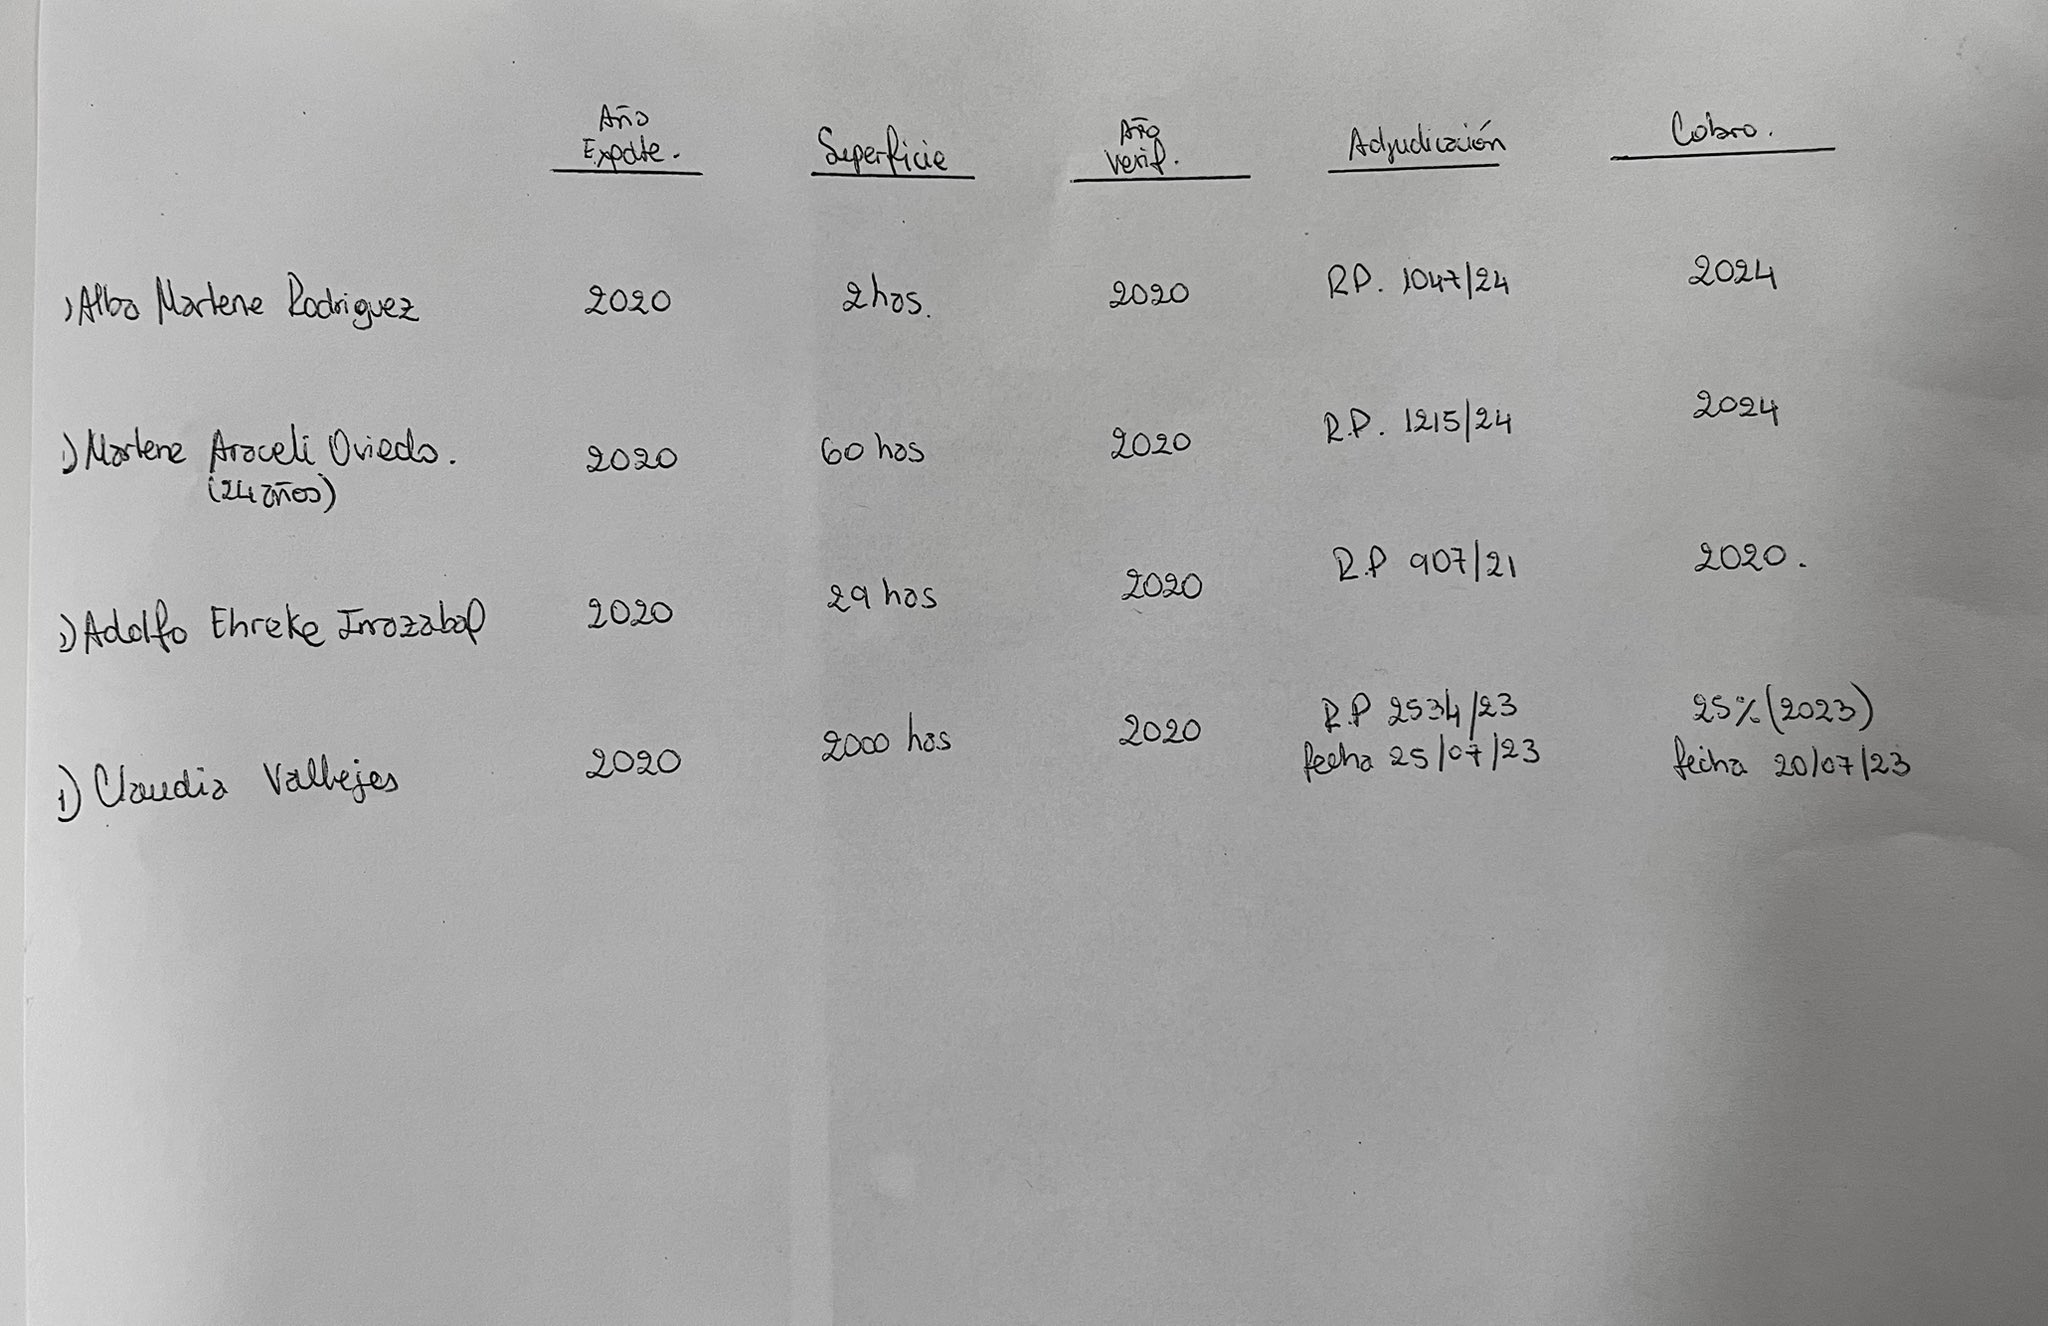 Año Expdte. Superficie Año Verif. Adjudicación Cobro.
1) Alba Marlene Rodriguez 2020 2 has. 2020 RP. 1047/24 2024
1) Marlene Araceli Oviedo. 2020 60 has 2020 R.P. 1215/24 2024
(24 años)
1) Adolfo Ehreke Irrazabal 2020 29 has 2020 R.P 907/21 2020.
1) Claudia Vallejes 2020 2000 has 2020 R.P 2534/23 25% (2023)
fecha 25/07/23 fecha 20/07/23